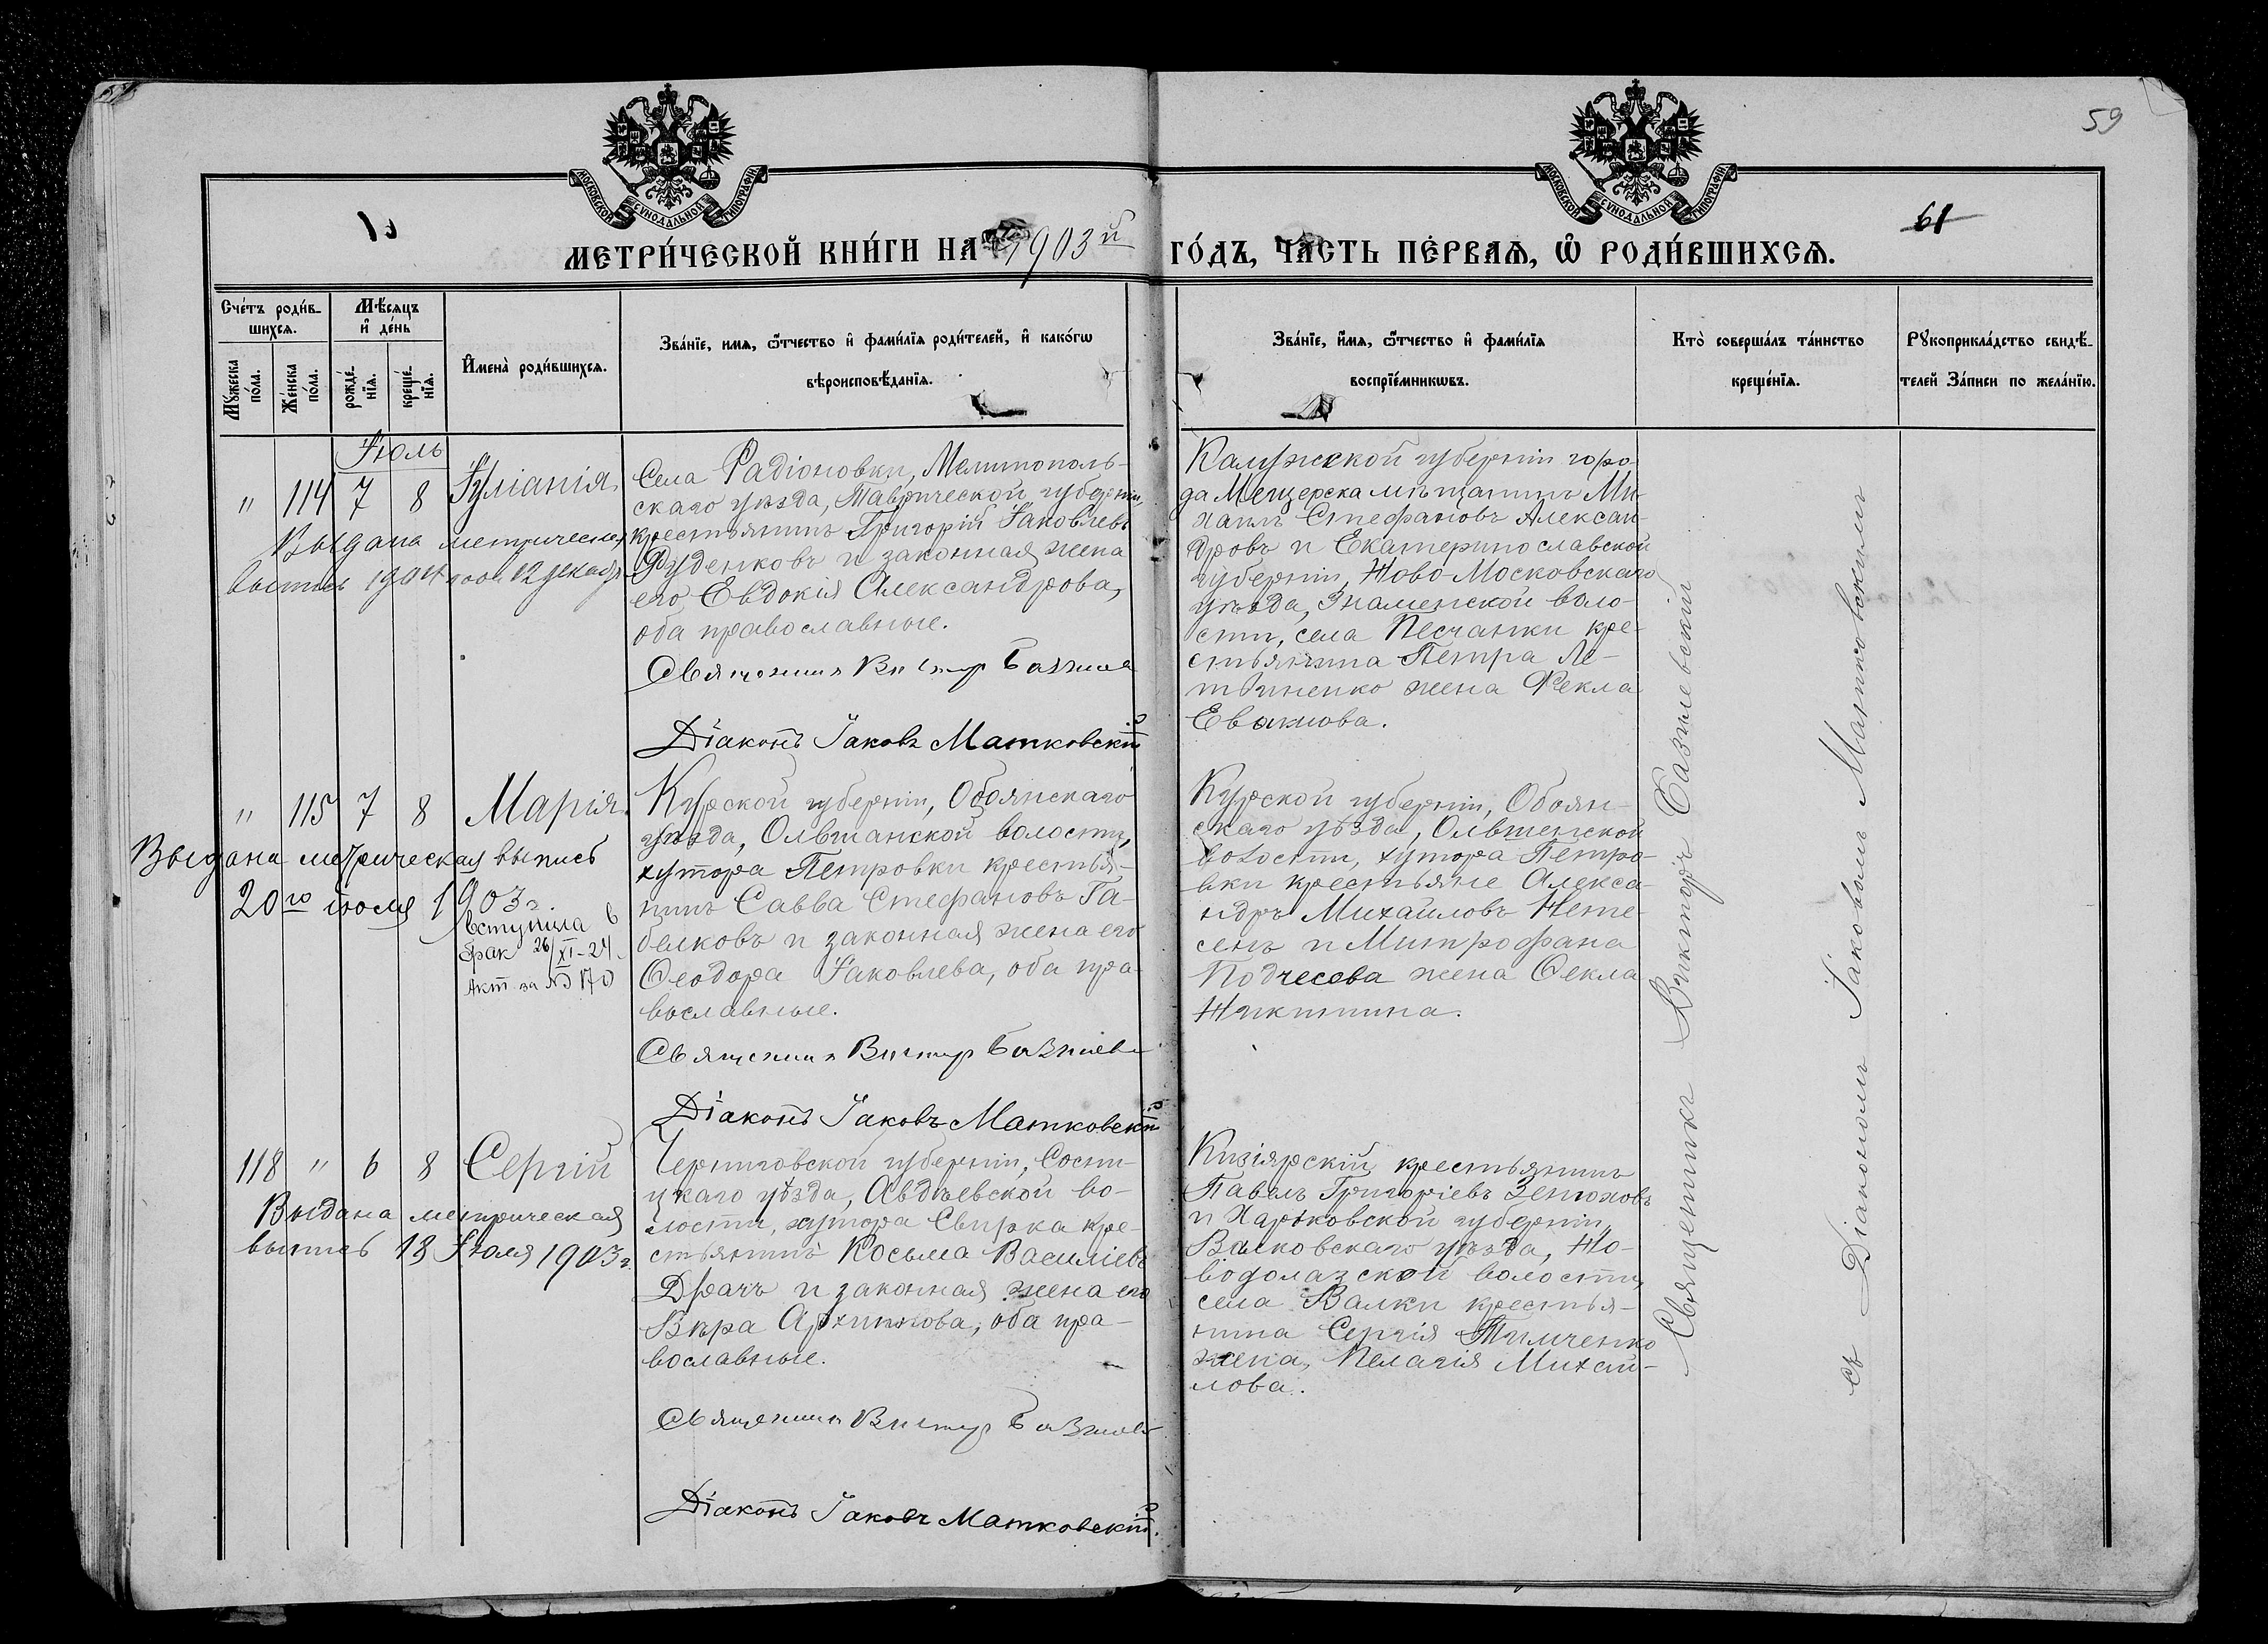 59
МОСКОВСКОЙ СѴНОДАЛЬНОЙ ТИПОГРАФІИ
МОСКОВСКОЙ СѴНОДАЛЬНОЙ ТИПОГРАФІИ
61
МЕТРИ́ЧЕСКОЙ КНИ́ГИ НА 1903й ГО́ДЪ, ЧА́СТЬ ПЕ́РВАѦ, Ѡ РОДИ́ВШИХСѦ.
Сче́тъ роди́в-
шихсѧ.
Мꙋ́жеска
по́ла.
Же́нска
по́ла.
Мѣ́сѧцъ
и҆ де́нь
рожде́-
нїѧ.
креще́-
нїѧ.
И҆мена̀ роди́вшихсѧ.
Зва́нїе, имѧ, ѻ҆́тчество и҆ фами́лїѧ роди́телей, и҆ како́гѡ
вѣроисповѣ́данїѧ.
Зва́нїе, и҆́мѧ, ѻ҆́тчество и҆ фами́лїѧ
воспрїе́мникѡвъ.
Кто̀ соверша́лъ та́инство
креще́нїѧ.
Рꙋкоприкла́дство свидѣ́-
телей За́писи по жела́нїю.
Іюль
" 114 7 8 Іуліанія.
Выдана метрическая
выпись 1904 года 12 декабря
Села Радіоновки, Мелитополь-
скаго уѣзда, Таврической губерніи,
крестьянинъ Григорій Іаковлевъ
Руденковъ и законная жена
его Евдокія Александрова,
оба православные.
Священникъ Викторъ
Діаконъ Іаковъ Матковскій
Калужской губерніи горо-
да Мещерска мѣщанинъ Ми-
хаилъ Стефановъ Алексан-
дровъ и Екатеринославской
губерніи, Ново-Московскаго
уѣзда, Знаменской воло-
сти, села Песчанки кре-
стьянина Петра Ли-
твиненко жена Фекла
" 115 7 8 Марія.
Выдана метрическая выпись
20го июля 1903г.
Вступила в
брак 26/XI-24.
Акт за № 170
Курской губерніи, Обоянскаго
уѣзда, Ольшанской волости,
хутора Петровки крестья-
нинъ Савва Стефановъ Га-
белковъ и законная жена его
Ѳеодора Іаковлева, оба пра-
вославные.
Священникъ Викторъ
Діаконъ Іаковъ Матковскій
Курской губерніи, Обоян-
скаго уѣзда, Ольшенской
волости, хутора Петро-
вки крестьяне Алекса-
ндръ Михайловъ
и Митрофана
Подчесова жена Ѳекла
Никитина.
118 " 6 8 Сергій
Выдана метрическая
выпись 13 Іюля 1903г.
Черниговской губерніи, Сосни-
цкаго уѣзда, Авдѣевской во-
лости, хутора Свирка кре-
стьянинъ Косьма Василіевъ
Драчъ и законная жена его
Вѣра Архипова, оба пра-
вославные.
Священникъ Викторъ
Діаконъ Іаковъ Матковскій.
Кизіярскій крестьянинъ
Павелъ Григоріевъ
и Харьковской губерніи,
Валковскаго уѣзда, Но-
водолазской волости,
села Валки крестья-
нина Сергія Тимченко
жена, Пелагія Михай-
лова.
Священникъ Викторъ Базилевскій
съ Діакономъ Іаковомъ Матковскимъ